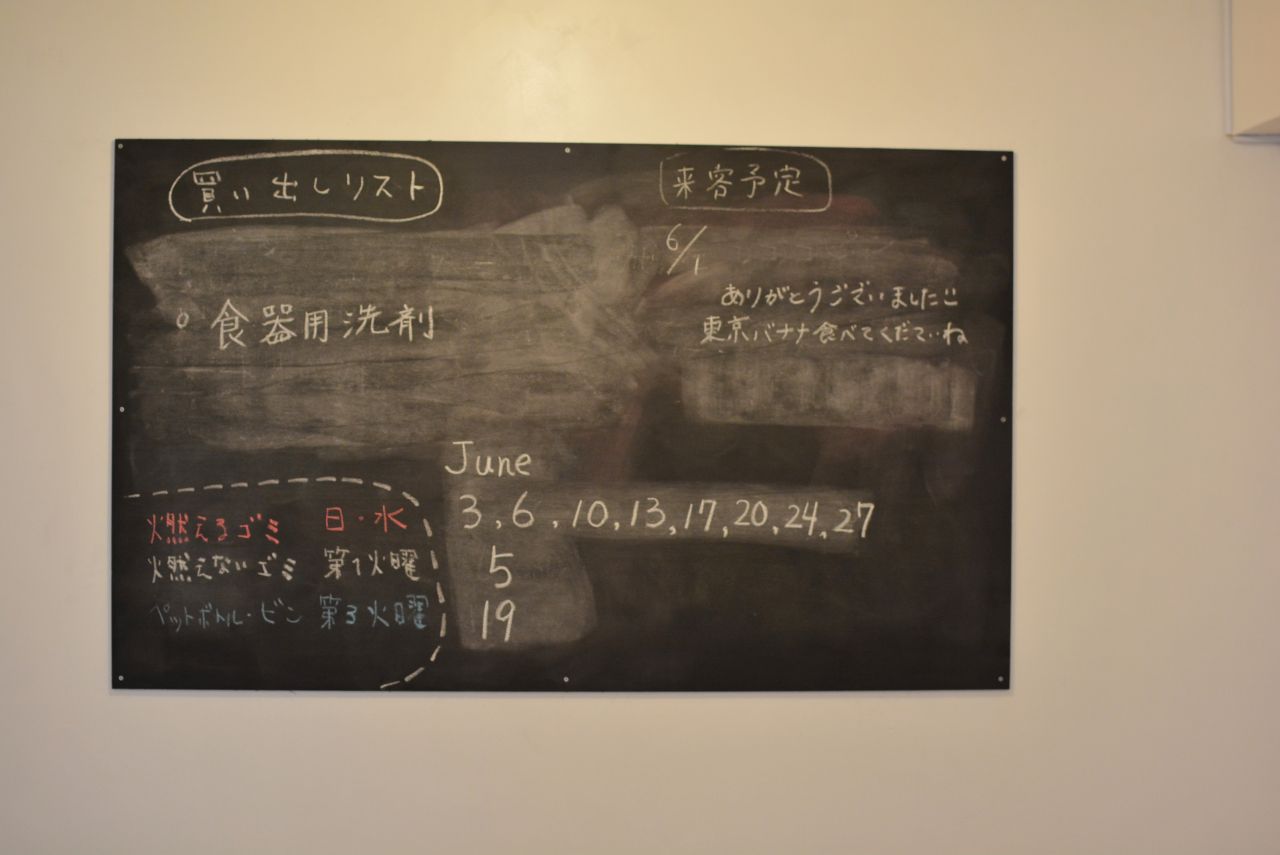 買い出しリスト
○ 食器用洗剤
来客予定
6/1
ありがとうございました
東京バナナ食べてくださいね
June
燃えるゴミ 日・水 3, 6, 10, 13, 17, 20, 24, 27
燃えないゴミ 第1火曜 5
ペットボトル・ビン 第3火曜 19